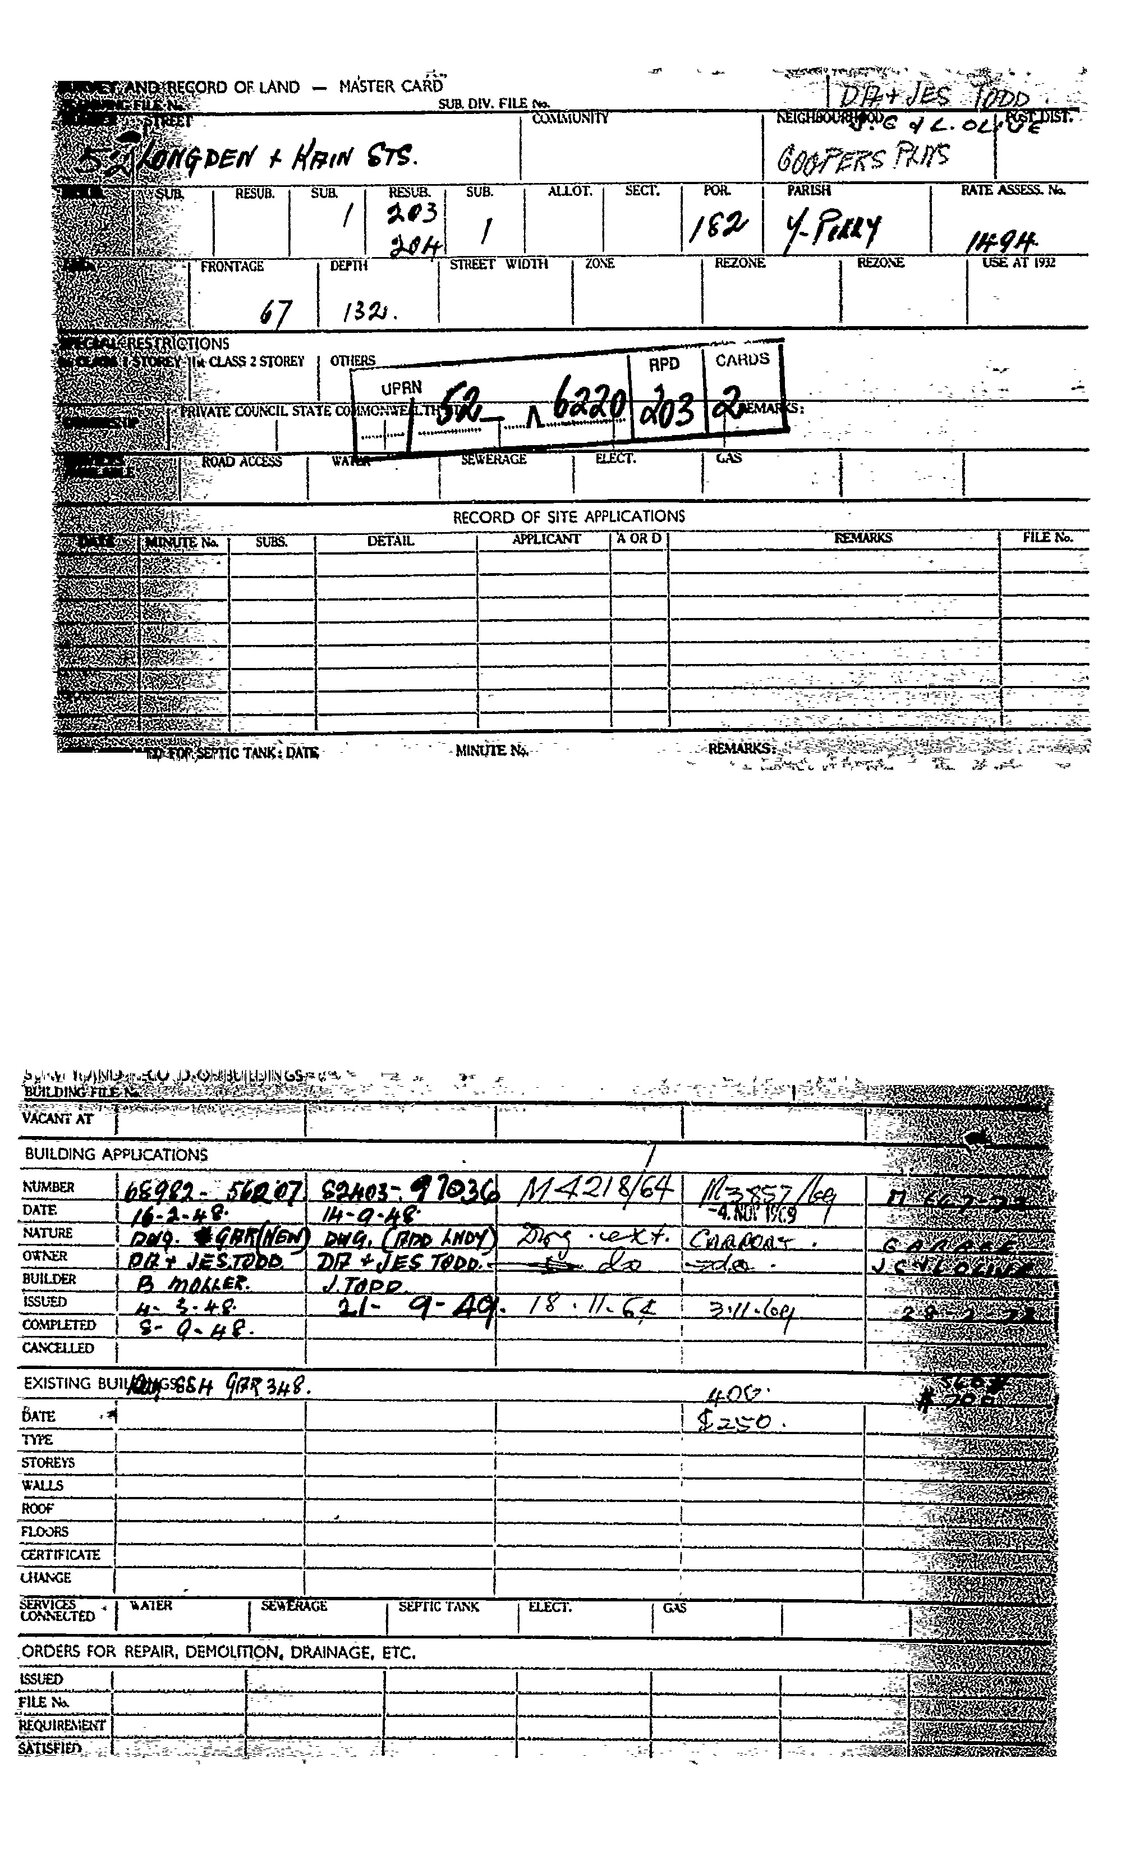 SURVEY AND RECORD OF LAND — MASTER CARD
DA + JES TODD
SUB. DIV. FILE No.
STREET COMMUNITY NEIGHBOURHOOD POST DIST.
J.C & L. OLIVE
52 LONGDEN + KAIN STS. COOPERS PLNS
SUB. RESUB. SUB. RESUB. SUB. ALLOT. SECT. POR. PARISH RATE ASSESS. No.
1 203 1 182 Y-PILLY 1494
204
FRONTAGE DEPTH STREET WIDTH ZONE REZONE REZONE USE AT 1932
67 132.
SPECIAL RESTRICTIONS
CLASS 1 STOREY CLASS 2 STOREY OTHERS
UPRN RPD CARDS
52 6220 203 2
PRIVATE COUNCIL STATE COMMONWEALTH REMARKS:
ROAD ACCESS WATER SEWERAGE ELECT. GAS
RECORD OF SITE APPLICATIONS
DATE MINUTE No. SUBS. DETAIL APPLICANT A OR D REMARKS FILE No.
FOR SEPTIC TANK: DATE MINUTE No. REMARKS:
BUILDING FILE No.
VACANT AT
BUILDING APPLICATIONS
NUMBER 68982- 56207 82403-97036 M4218/64 M3857/69
DATE 16-2-48. 14-9-48. -4. NOV 1969
NATURE DWG. GAR(NEW) DWG. (ADD LNDY) Dwg. ext. CARPORT. GARAGE
OWNER DA + JES.TODD DA + JES TODD. do do. J C & L OLIVE
BUILDER B MOLLER. J. TODD
ISSUED 4-3-48. 21-9-49. 18.11.64 3.11.69 28-2-72
COMPLETED 8-9-48.
CANCELLED
EXISTING BUILDINGS GAR 348.
400.
DATE $250.
TYPE
STOREYS
WALLS
ROOF
FLOORS
CERTIFICATE
CHANGE
SERVICES CONNECTED WATER SEWERAGE SEPTIC TANK ELECT. GAS
ORDERS FOR REPAIR, DEMOLITION, DRAINAGE, ETC.
ISSUED
FILE No.
REQUIREMENT
SATISFIED